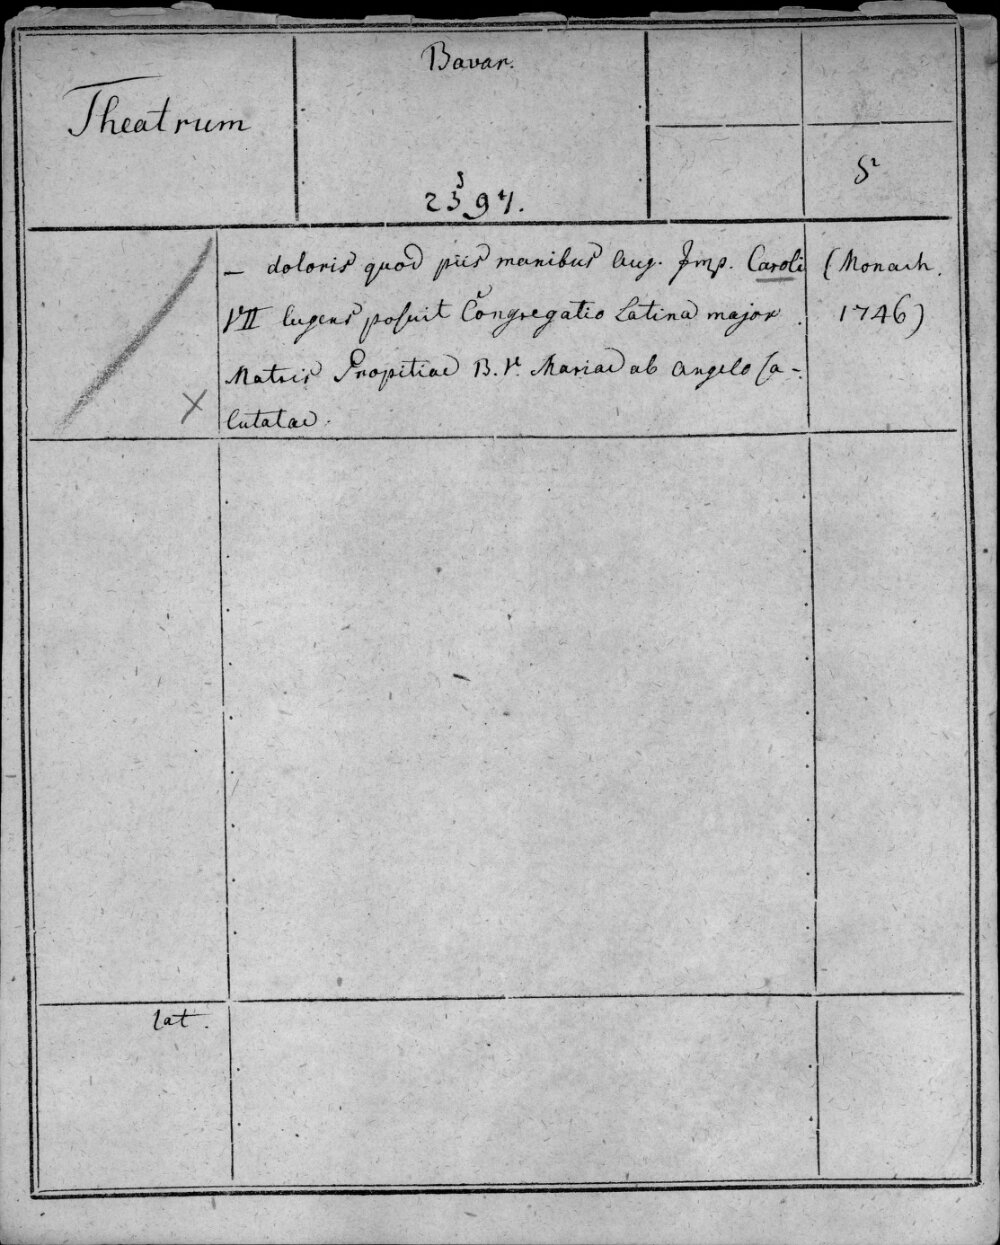 Theatrum
Bavar.
2397.
5
8°
— doloris quod piis manibus Aug. Imp. Caroli
VII lugens posuit Congregatio Latina major
Matris Propitiae B. V. Mariae ab Angelo sa-
lutatae.
(Monach.
1746)
X
lat.